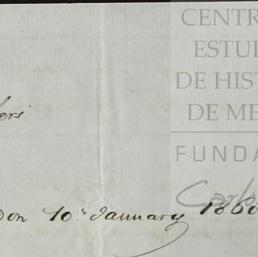 CENTR
ESTU
DE HIST
DE ME
FUNDA
Carl
don 10th January 1860